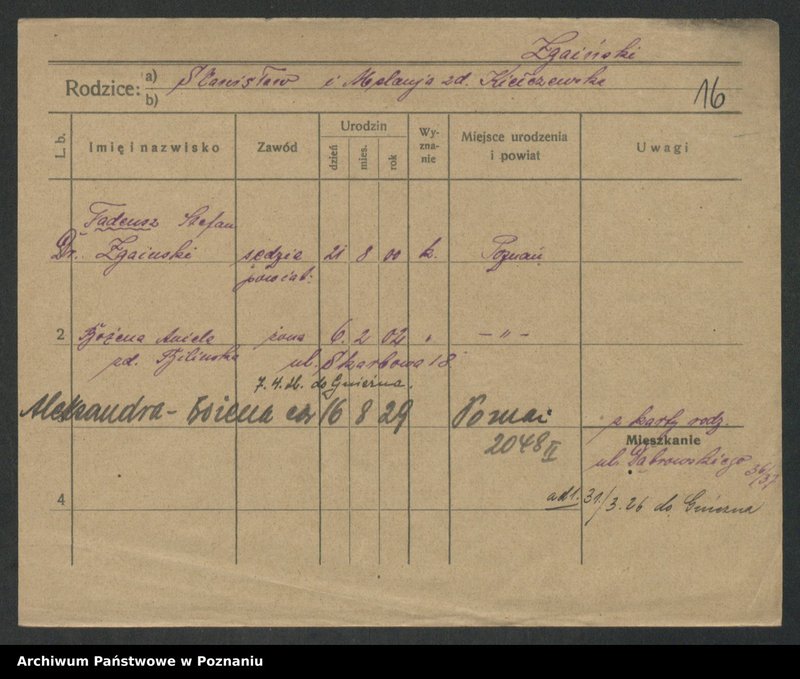 Zgaiński
Rodzice: a) Stanisław i Melanja zd. Kiełczewska
b)
16
L. b. Imię i nazwisko Zawód Urodzin dzień mies. rok Wyznanie Miejsce urodzenia i powiat Uwagi
Tadeusz Stefan
Dr. Zgaiński sędzia 21 8 00 k. Poznań
powiat.
2 Bożena Aniela żona 6. 2 02 " — " —
zd. Bilińska ul. Skarbowa 18
7. 4. 26. do Gniezna.
Aleksandra - Bożena 16 8 29 Poznań
z karty rodz.
2048 II
Mieszkanie
ul. Dąbrowskiego 36/37
4 ad 1. 31/3. 26 do Gniezna
Archiwum Państwowe w Poznaniu